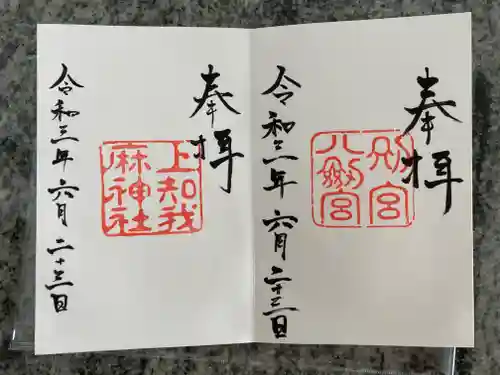 奉拝
別宮
八剱宮
令和三年六月二十三日
奉拝
上知我
麻神社
令和三年六月二十三日